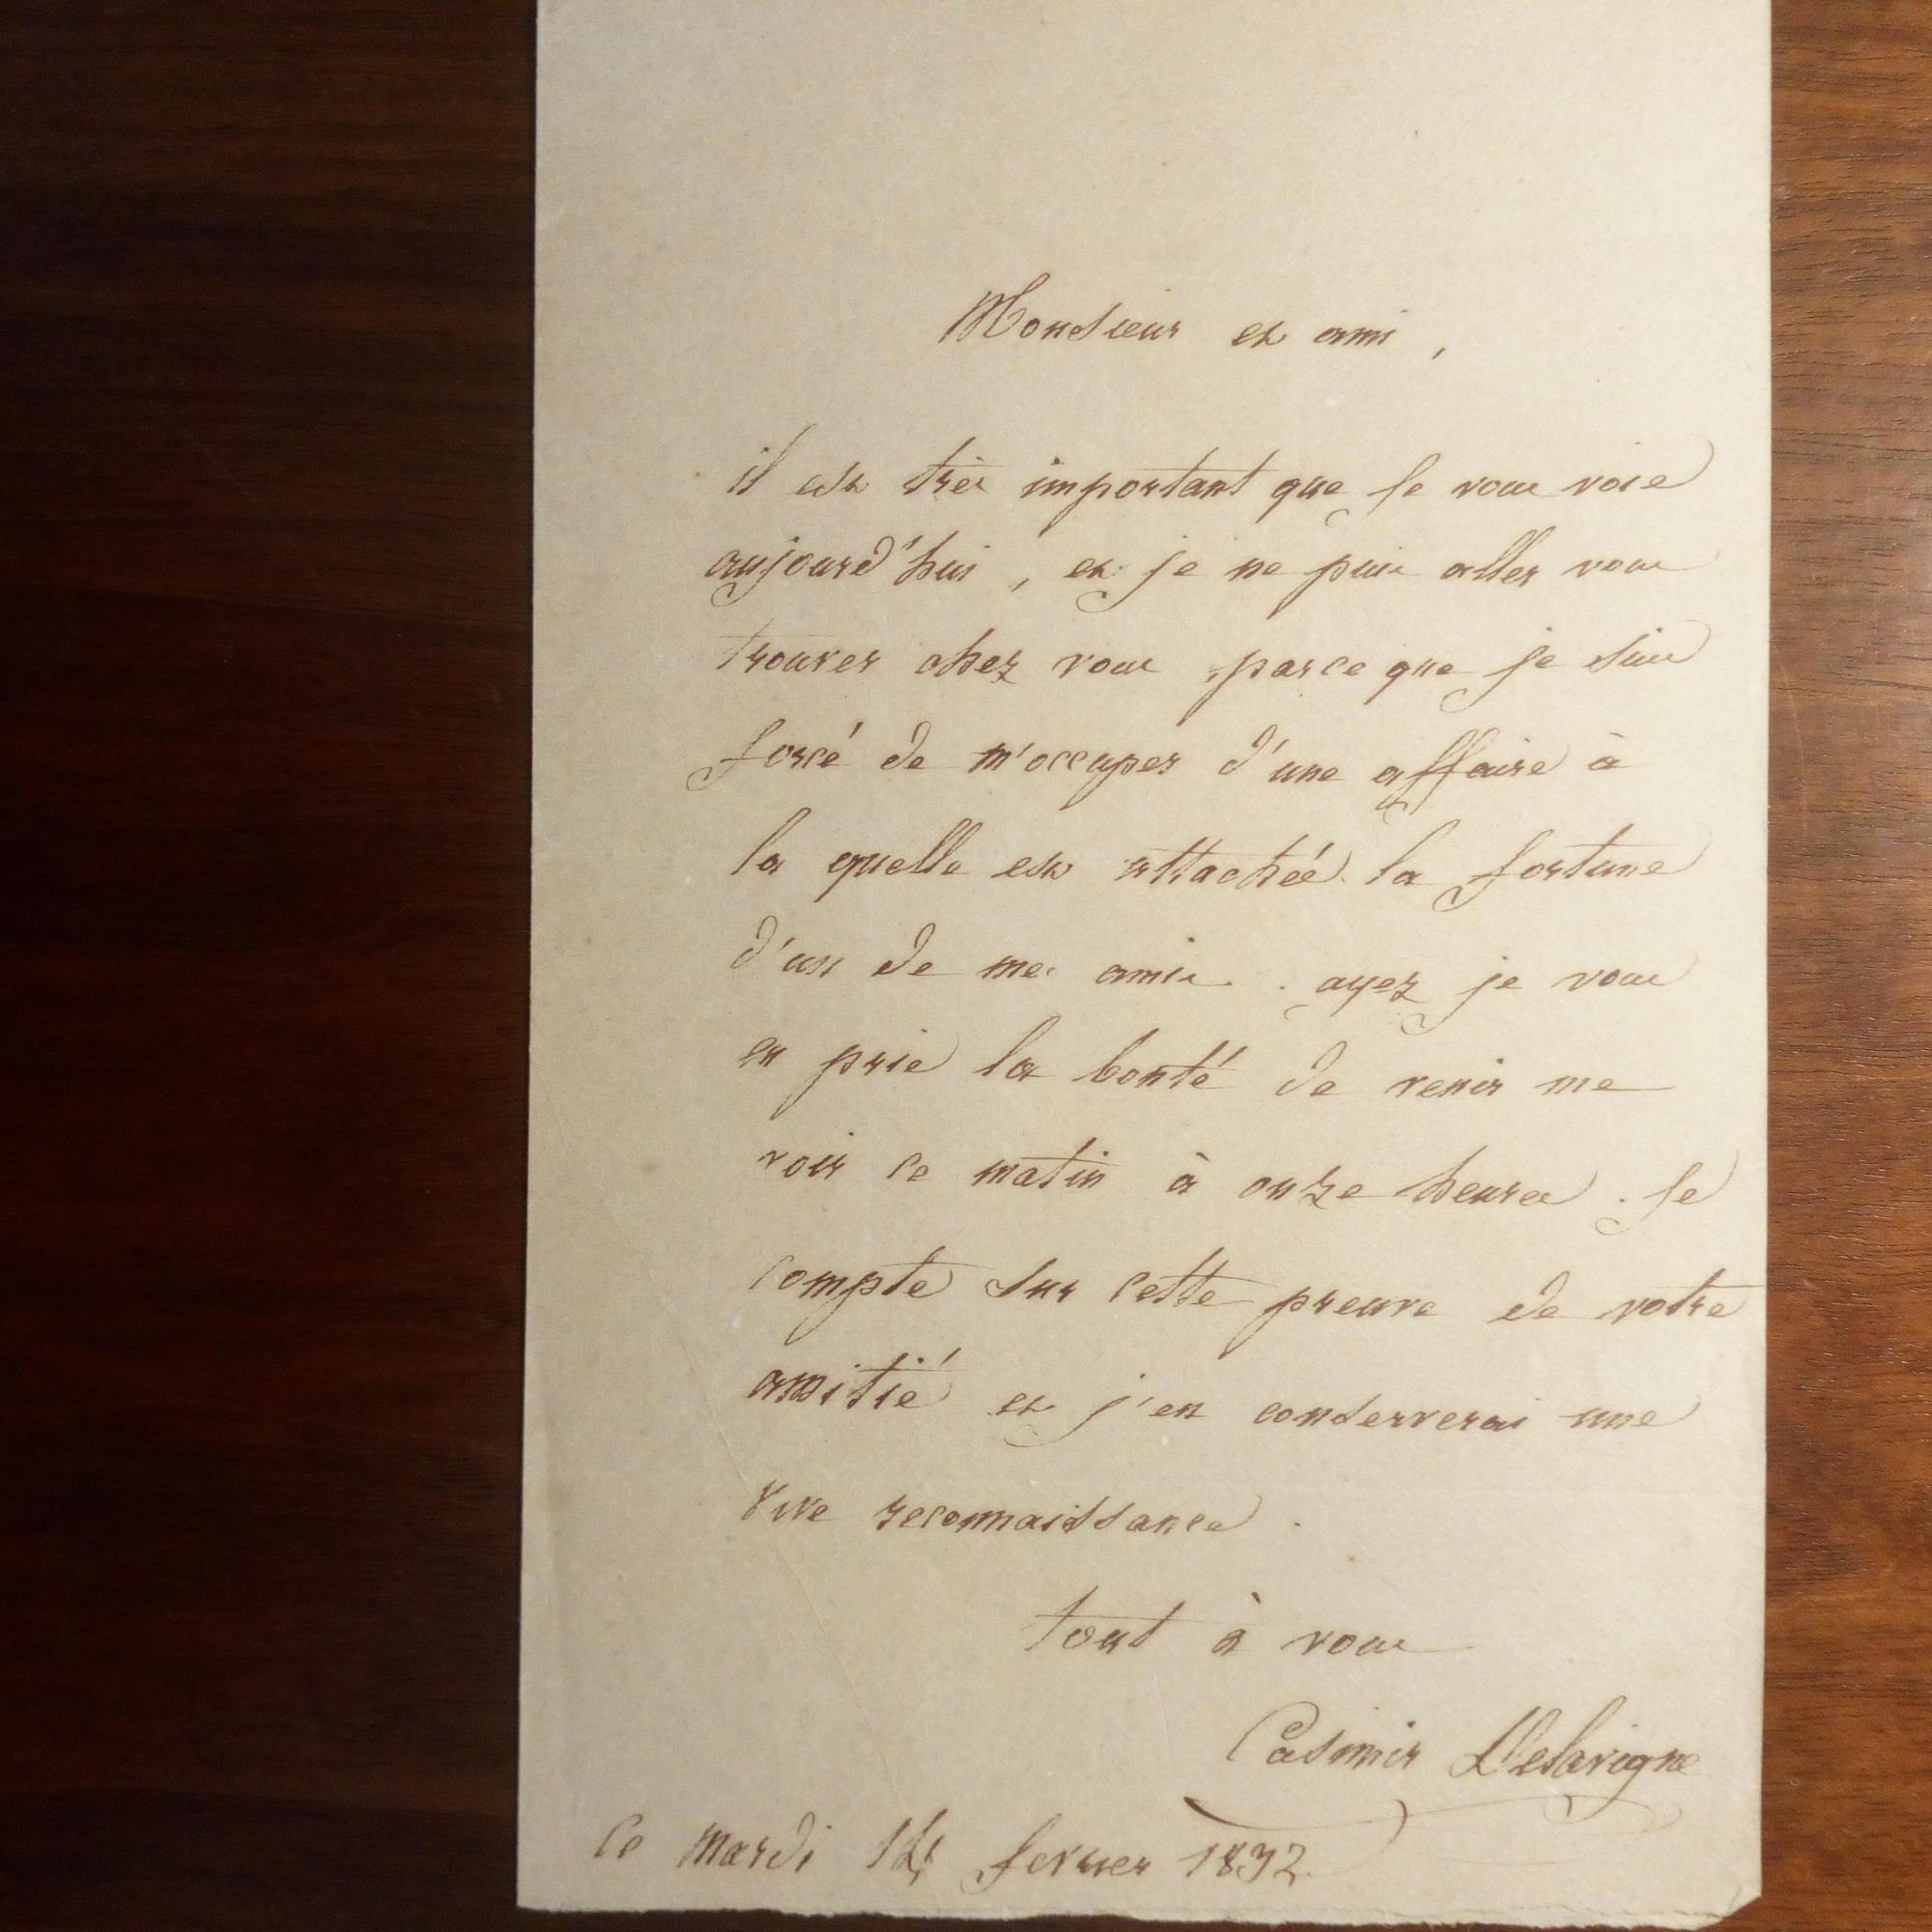 Monsieur et ami,
il est très important que je vous voie
aujourd'hui, et je ne puis aller vous
trouver chez vous parce que je suis
forcé de m'occuper d'une affaire à
la quelle est attachée la fortune
d'un de mes amis. ayez je vous
en prie la bonté de venir me
voir ce matin à onze heures. Je
compte sur cette preuve de votre
amitié et j'en conserverai une
vive reconnaissance.
tout à vous
Casimir Delavigne
Ce mardi 14 fevrier 1832